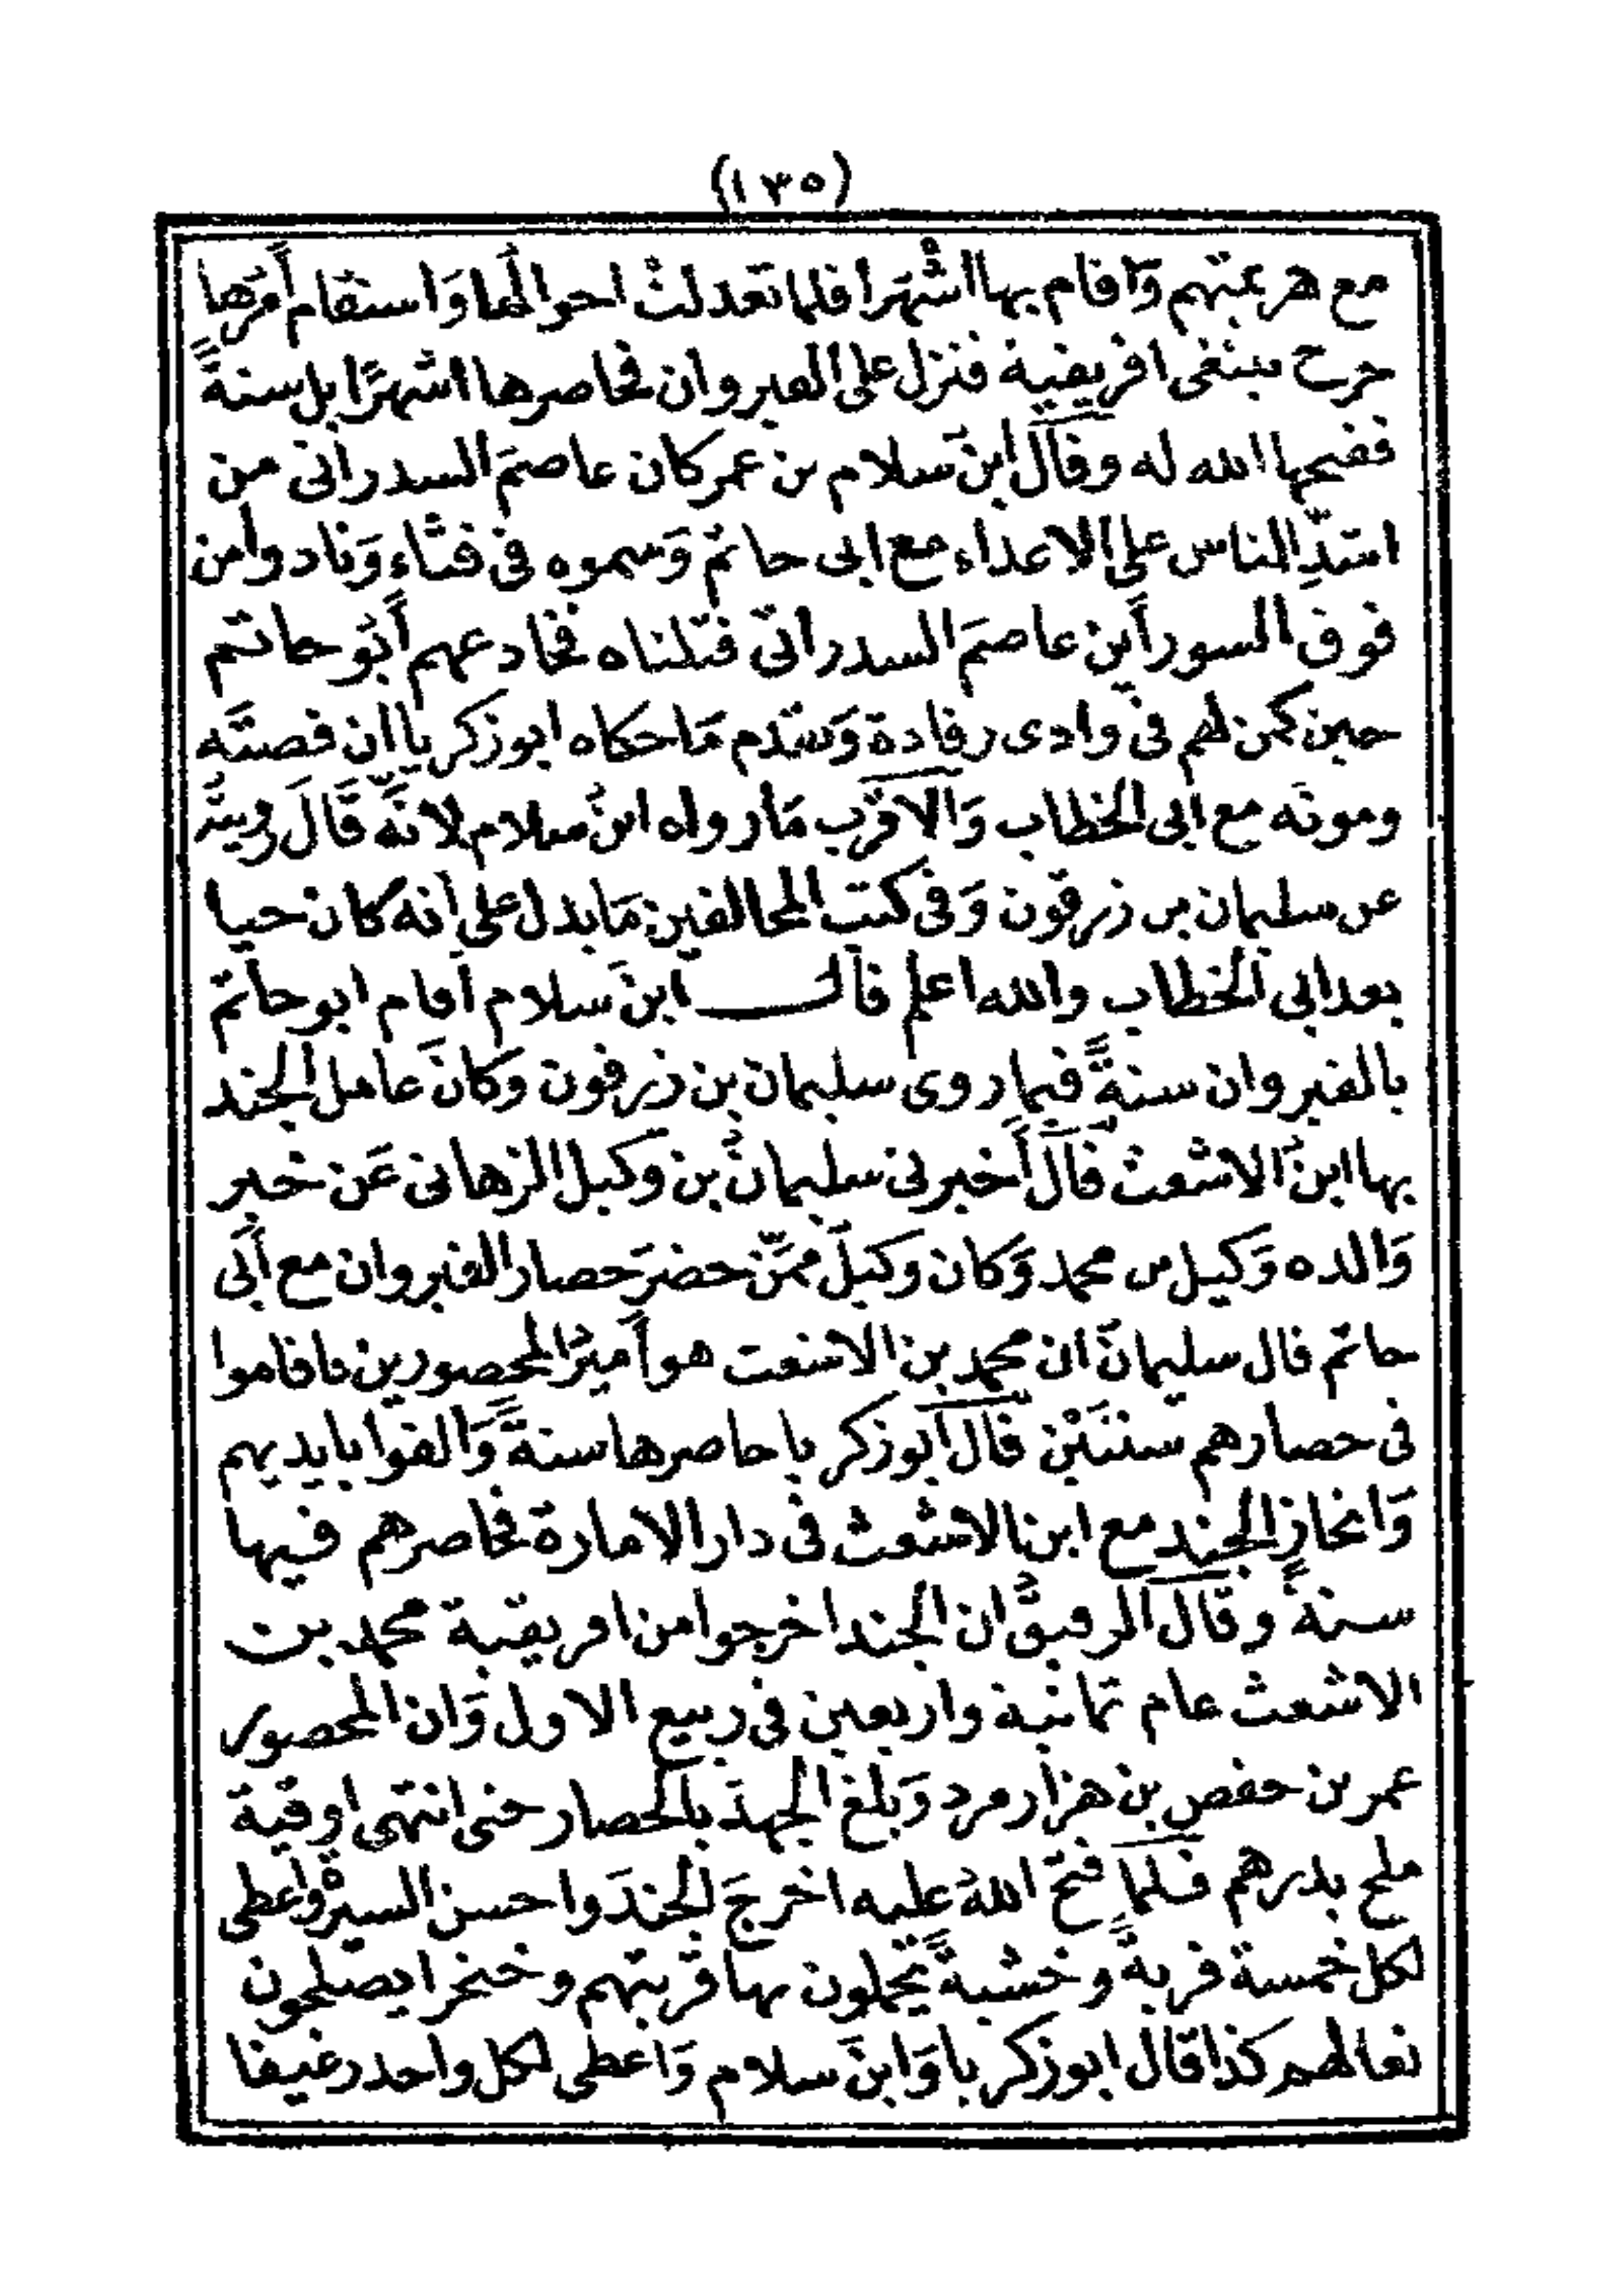 (١٣٥)
مع هزيمتهم وَأقام بها اشْهَرا فلما تعدلتْ احوالُها وَاستقام أَمرُها
خرج يبتغى افريقية فنزل على القيروان فحاصرها اشهرًا بل سنةً
ففتحها الله له وقَالَ ابنَ سَلام بن عمر كان عاصمَ السدراتى من
اشدِّ الناس على الاعداء مع ابى حاتم وَسموه فى قثاء وَنادوا من
فوق السور أَين عاصمَ السدراتى قتلناه فخادعهم أَبُو حاتم
حين كمن لهم فى وادى رقادة وَتقدم مَا حكاه ابو زكريا ان قصته
وموته مع ابى الخطاب وَالاقرب مَا رواه ابنُ سلام لانَّه قَالَ رويتُ
عن سليمان بن زرقون وَفى كتب المخالفين مَا يدل على أنه كان حيا
بعد ابى الخطاب والله اعلم قال ابنَ سَلام أقام ابو حاتم
بالقيروان سنةً فيما روى سليمان بن زرقون وكانَ عامل الجند
بها ابنُ الاشعث قَالَ أَخبرنى سليمانُ بن وكيل الزهانى عَن خبر
وَالده وَكيل بن محمد وَكان وَكيلَ ممَّن حضرَ حصار القيروان مع أَبى
حاتم قال سليمانَ ان محمد بن الاشعت هو أَميرُ المحصورين فاقاموا
فى حصارهم سنتَيْن قَالَ أَبوزكريا حاصرها سنةً وَالقوا بايديهم
وَانحاز الجند مع ابن الاشعث فى دار الامارة فحاصرهم فيها
سنةً وقَالَ الرقيقُ ان الجند اخرجوا من افريقية محمد بن
الاشعث عام ثمانية واربعين فى ربيع الاول وَان المحصور
عمر بن حفص بن هزارمرد وَبلغ الجهدَ بالحصار حتى انتهى اوقية
ملح بدرهم فلما فتح اللهُ عليه اخرجَ الجندَ واحسن السيرةَ واعطى
لكل خمسة قربةً وخشبةً يحملون بها قربتهم وخنجرا يصلحون
نعالهم كذا قال ابو زكريا وَابنَ سلام وَاعطى لكل واحد رغيفا